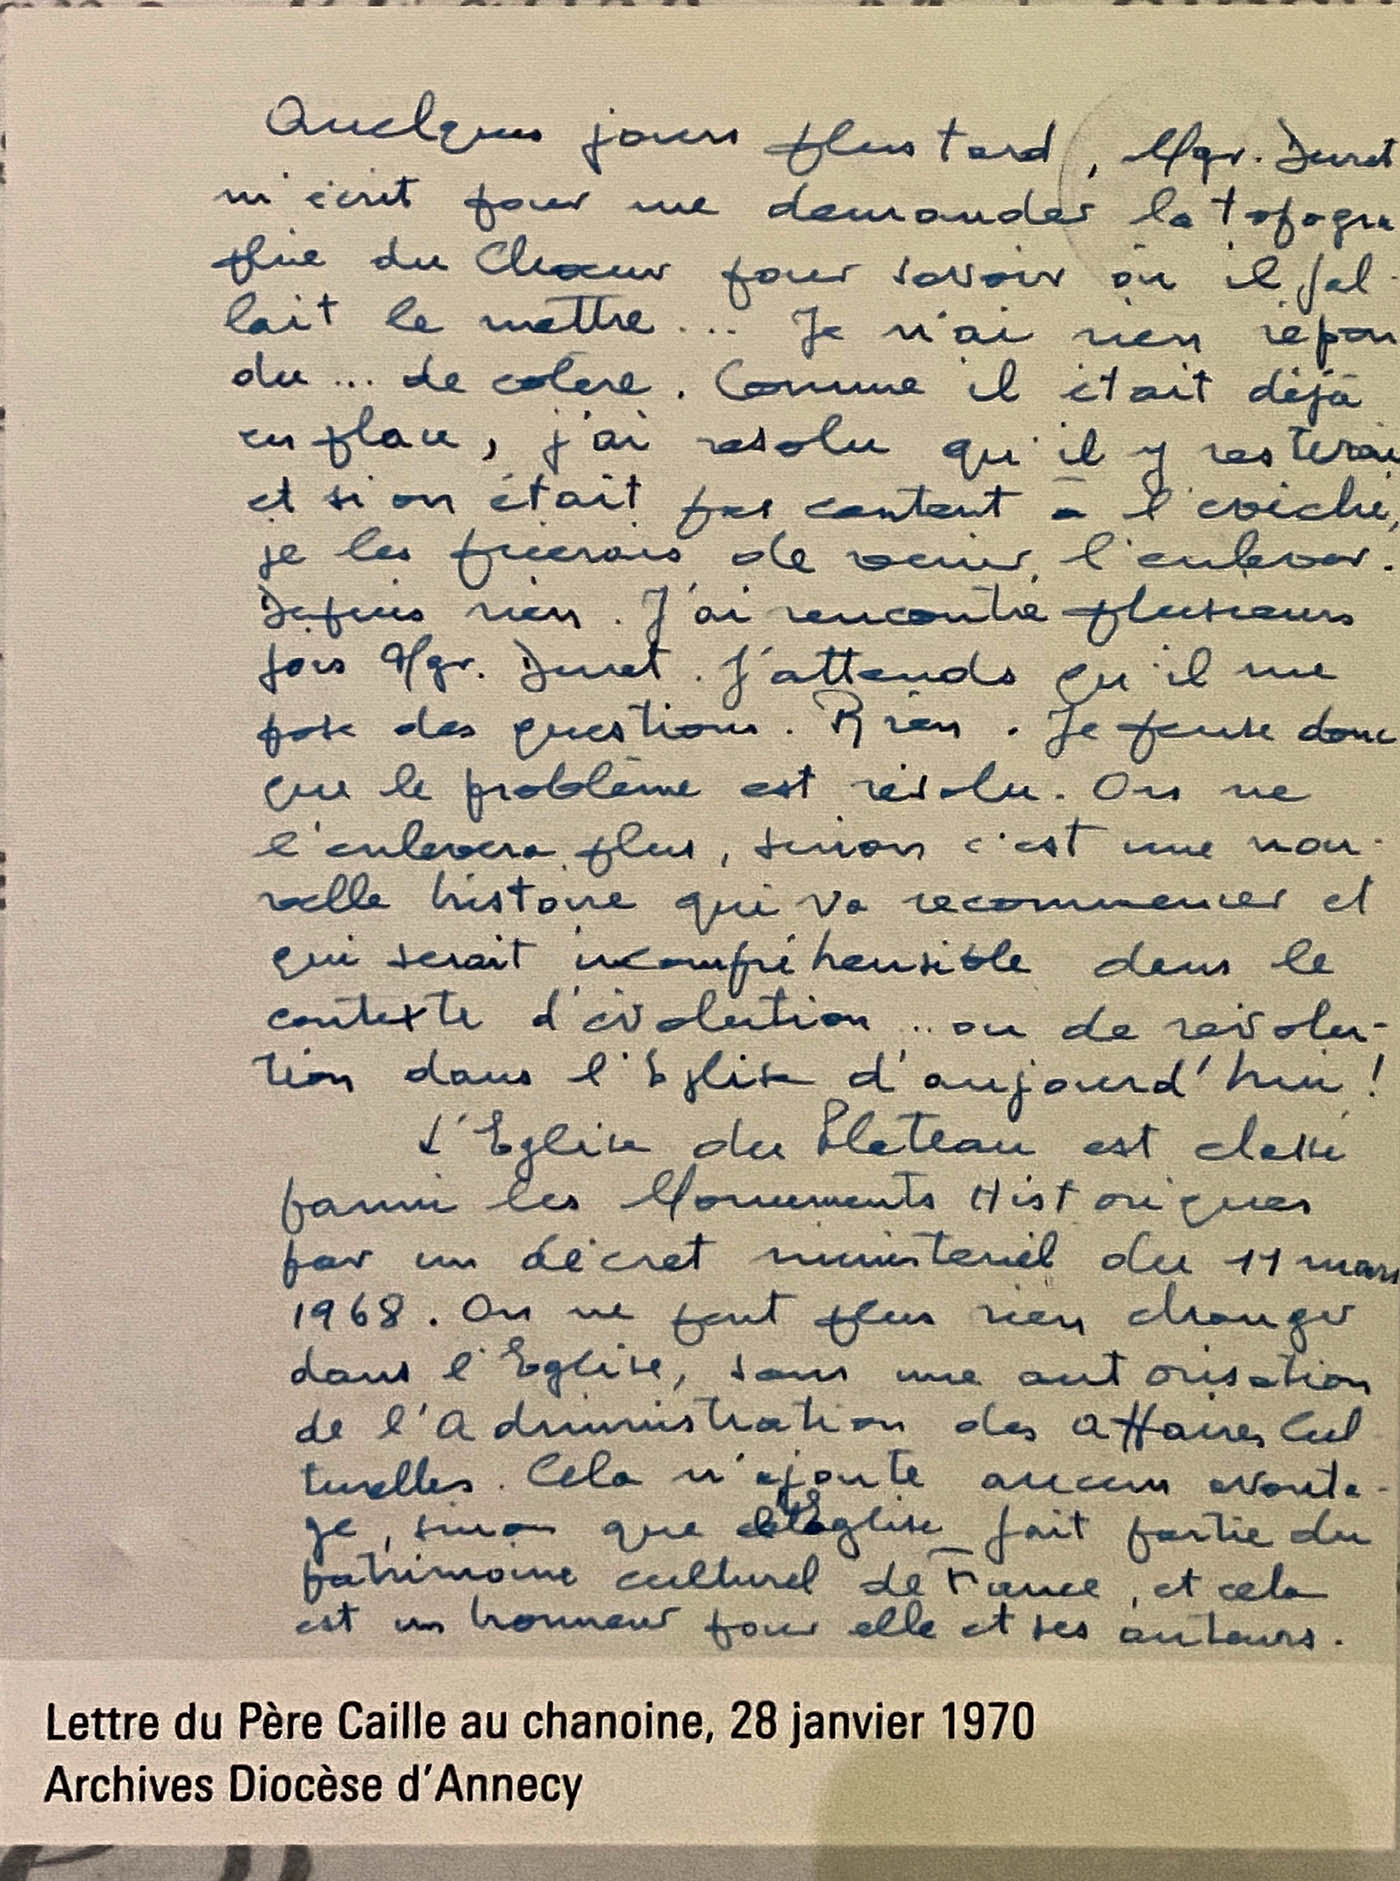 Quelques jours plus tard, Mgr. Duret
m'écrit pour me demander la topogra
phie du Chœur pour savoir où il fal-
lait le mettre... Je n'ai rien répon
du... de colère. Comme il était déjà
en place, j'ai résolu qu'il y resterai
et si on était pas content à l'évêché,
je les prierais de venir l'enlever.
Depuis rien. J'ai rencontré plusieurs
fois Mgr. Duret. J'attends qu'il me
pose des questions. Rien. Je pense donc
que le problème est résolu. On ne
l'enlevera plus, sinon c'est une nou-
velle histoire qui va recommencer et
qui serait incompréhensible dans le
contexte d'évolution... ou de révolu-
tion dans l'Eglise d'aujourd'hui !
L'Eglise du Plateau est classé
parmi les Monuments Historiques
par un décret ministériel du 11 mars
1968. On ne peut plus rien changer
dans l'Eglise, sans une autorisation
de l'Administration des Affaires Cul
turelles. Cela n'ajoute aucun avanta-
ge, sinon que l'Eglise fait partie du
patrimoine culturel de France, et cela
est un honneur pour elle et ses auteurs.
Lettre du Père Caille au chanoine, 28 janvier 1970
Archives Diocèse d'Annecy